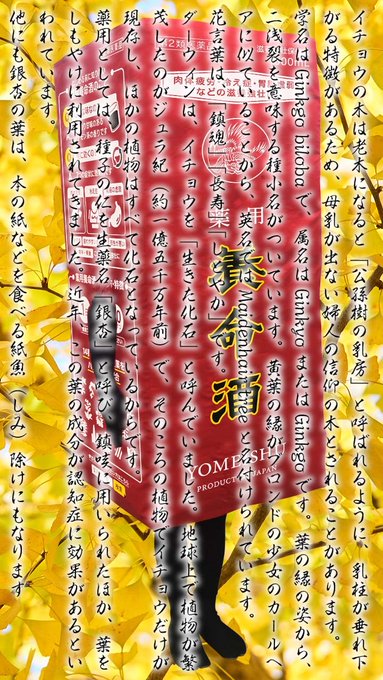 イチョウの木は老木になると「公孫樹の乳房」と呼ばれるように、乳柱が垂れ下
がる特徴があるため、母乳が出ない婦人の信仰の木とされることがあります。
学名は Ginkgo biloba で、属名は Ginkyo または Ginkgo です。葉の縁の姿から、
二浅裂を意味する種小名がついています。黄葉の縁がブロンドの少女のカールヘ
アに似ていることから、英名では Maidenhair tree と名付けられています。
花言葉は、「鎮魂」「長寿」「しとやか」です。
ダーウィンは、イチョウを「生きた化石」と呼んでいました。地球上で植物が繁
茂したのがジュラ紀（約一億五千万年前）で、そのころの植物でイチョウだけが
現存し、ほかの植物はすべて化石となっているからです。
薬用としては、種子の仁を生薬名「銀杏」と呼び、鎮咳に用いられたほか、葉を
しもやけに利用されてきました。近年、この葉の成分が認知症に効果があるとい
われています。
他にも銀杏の葉は、本の紙などを食べる紙魚（しみ）除けにもなります
肉体疲労・冷え症・胃腸虚弱
などの滋養強壮
薬用
養命酒
YOMEISHU
PRODUCT OF JAPAN